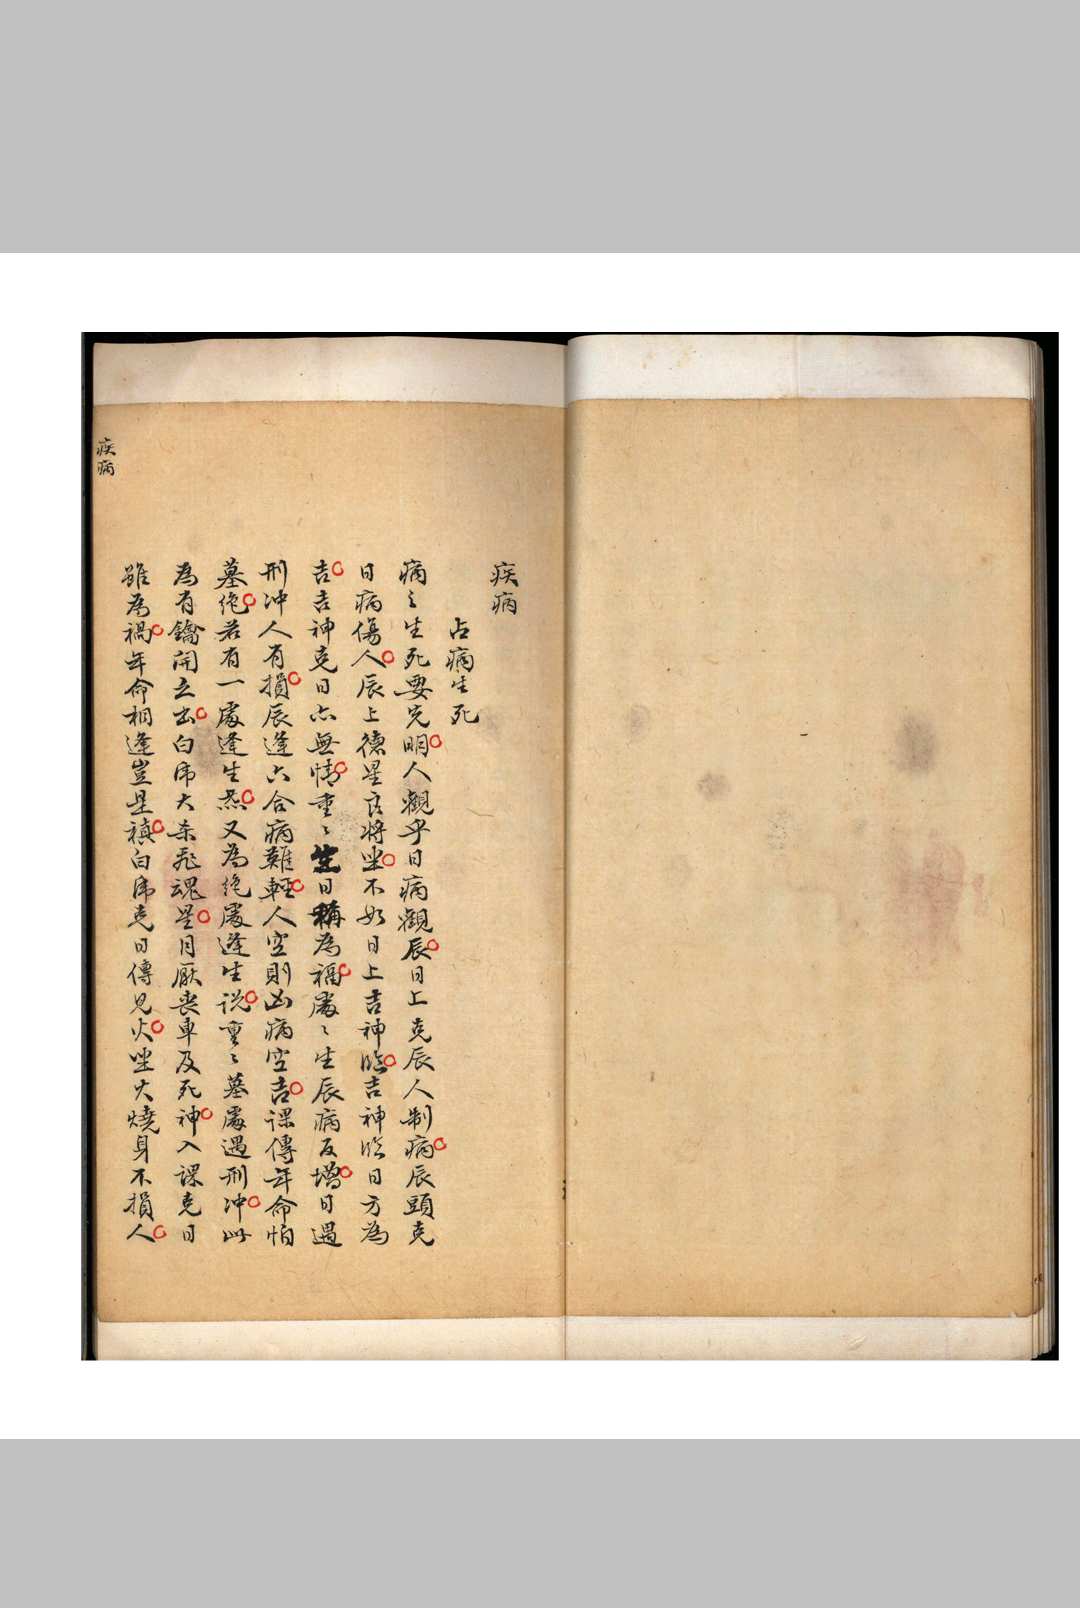 疾病
占病生死
病〻生死要究明人觀乎日病觀辰日上克辰人制病辰頭克
日病傷人辰上德星良將坐不如日上吉神臨吉神臨日方為
吉吉神克日亦無情重〻生日稱為福處〻生辰病反增日遇
刑冲人有損辰逢六合病難輕人空則凶病空吉課傳年命怕
墓絶若有一處逢生炁又為絶處逢生説重〻墓處遇刑冲此
為有鑰開之出白虎大杀飛魂星月厭喪車及死神入課克日
雖為禍年命相逢豈是禎白虎克日傳見火坐火燒身不損人
疾病